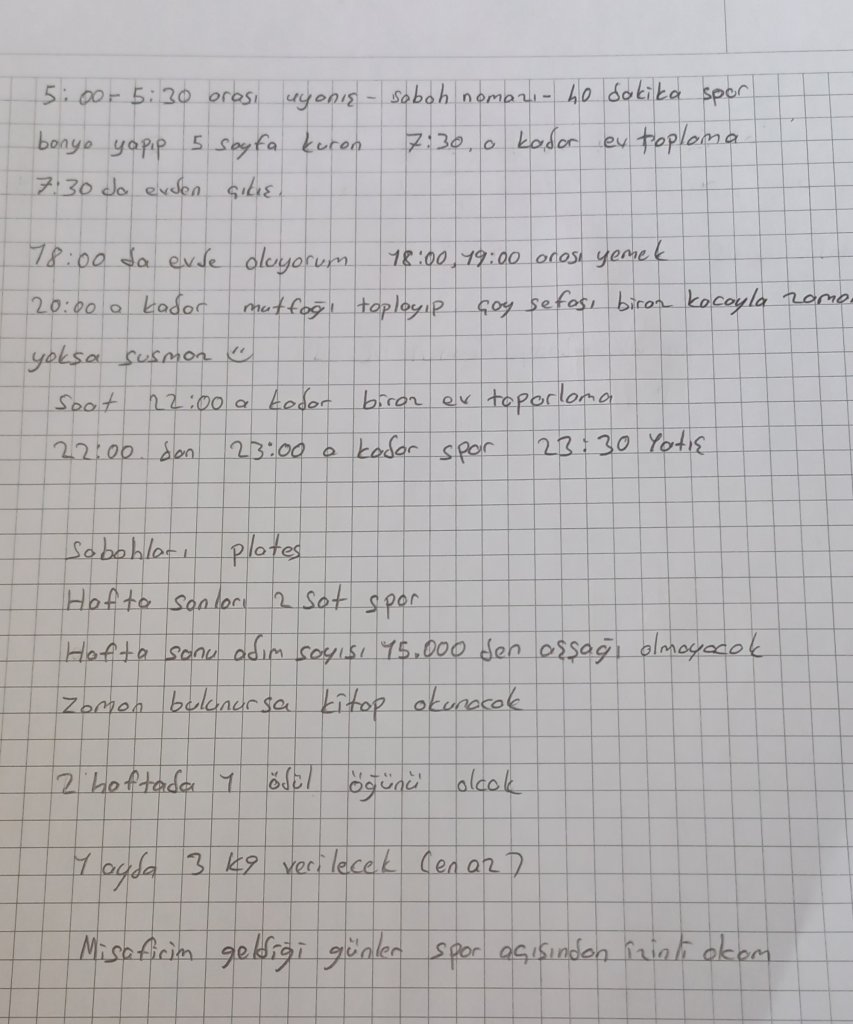 5:00-5:30 arası uyanış - sabah namazı - 40 dakika spor
banyo yapıp 5 sayfa kuran 7:30, a kadar ev toplama
7:30 da evden çıkış.
18:00 da evde oluyorum 18:00, 19:00 arası yemek
20:00 a kadar mutfağı toplayıp çay sefası biraz kocayla zama
yoksa susman
Saat 22:00 a kadar biraz ev toparlama
22:00 dan 23:00 a kadar spor 23:30 Yatış
Sabahları plates
Hafta sonları 2 sat spor
Hafta sonu adım sayısı 15.000 den aşşağı olmayacak
Zaman bulunursa kitap okunacak
2 haftada 1 ödül öğünü olcak
1 ayda 3 kg verilecek (en az)
Misafirim geldiği günler spor açısından izinli okam